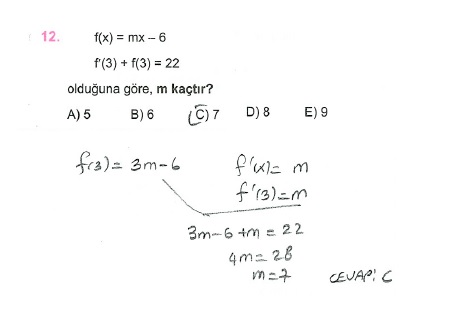 12. f(x) = mx – 6
f'(3) + f(3) = 22
olduğuna göre, m kaçtır?
A) 5 B) 6 C) 7 D) 8 E) 9
f(3) = 3m-6 f'(x) = m
f'(3) = m
3m-6+m = 22
4m = 28
m = 7 CEVAP: C